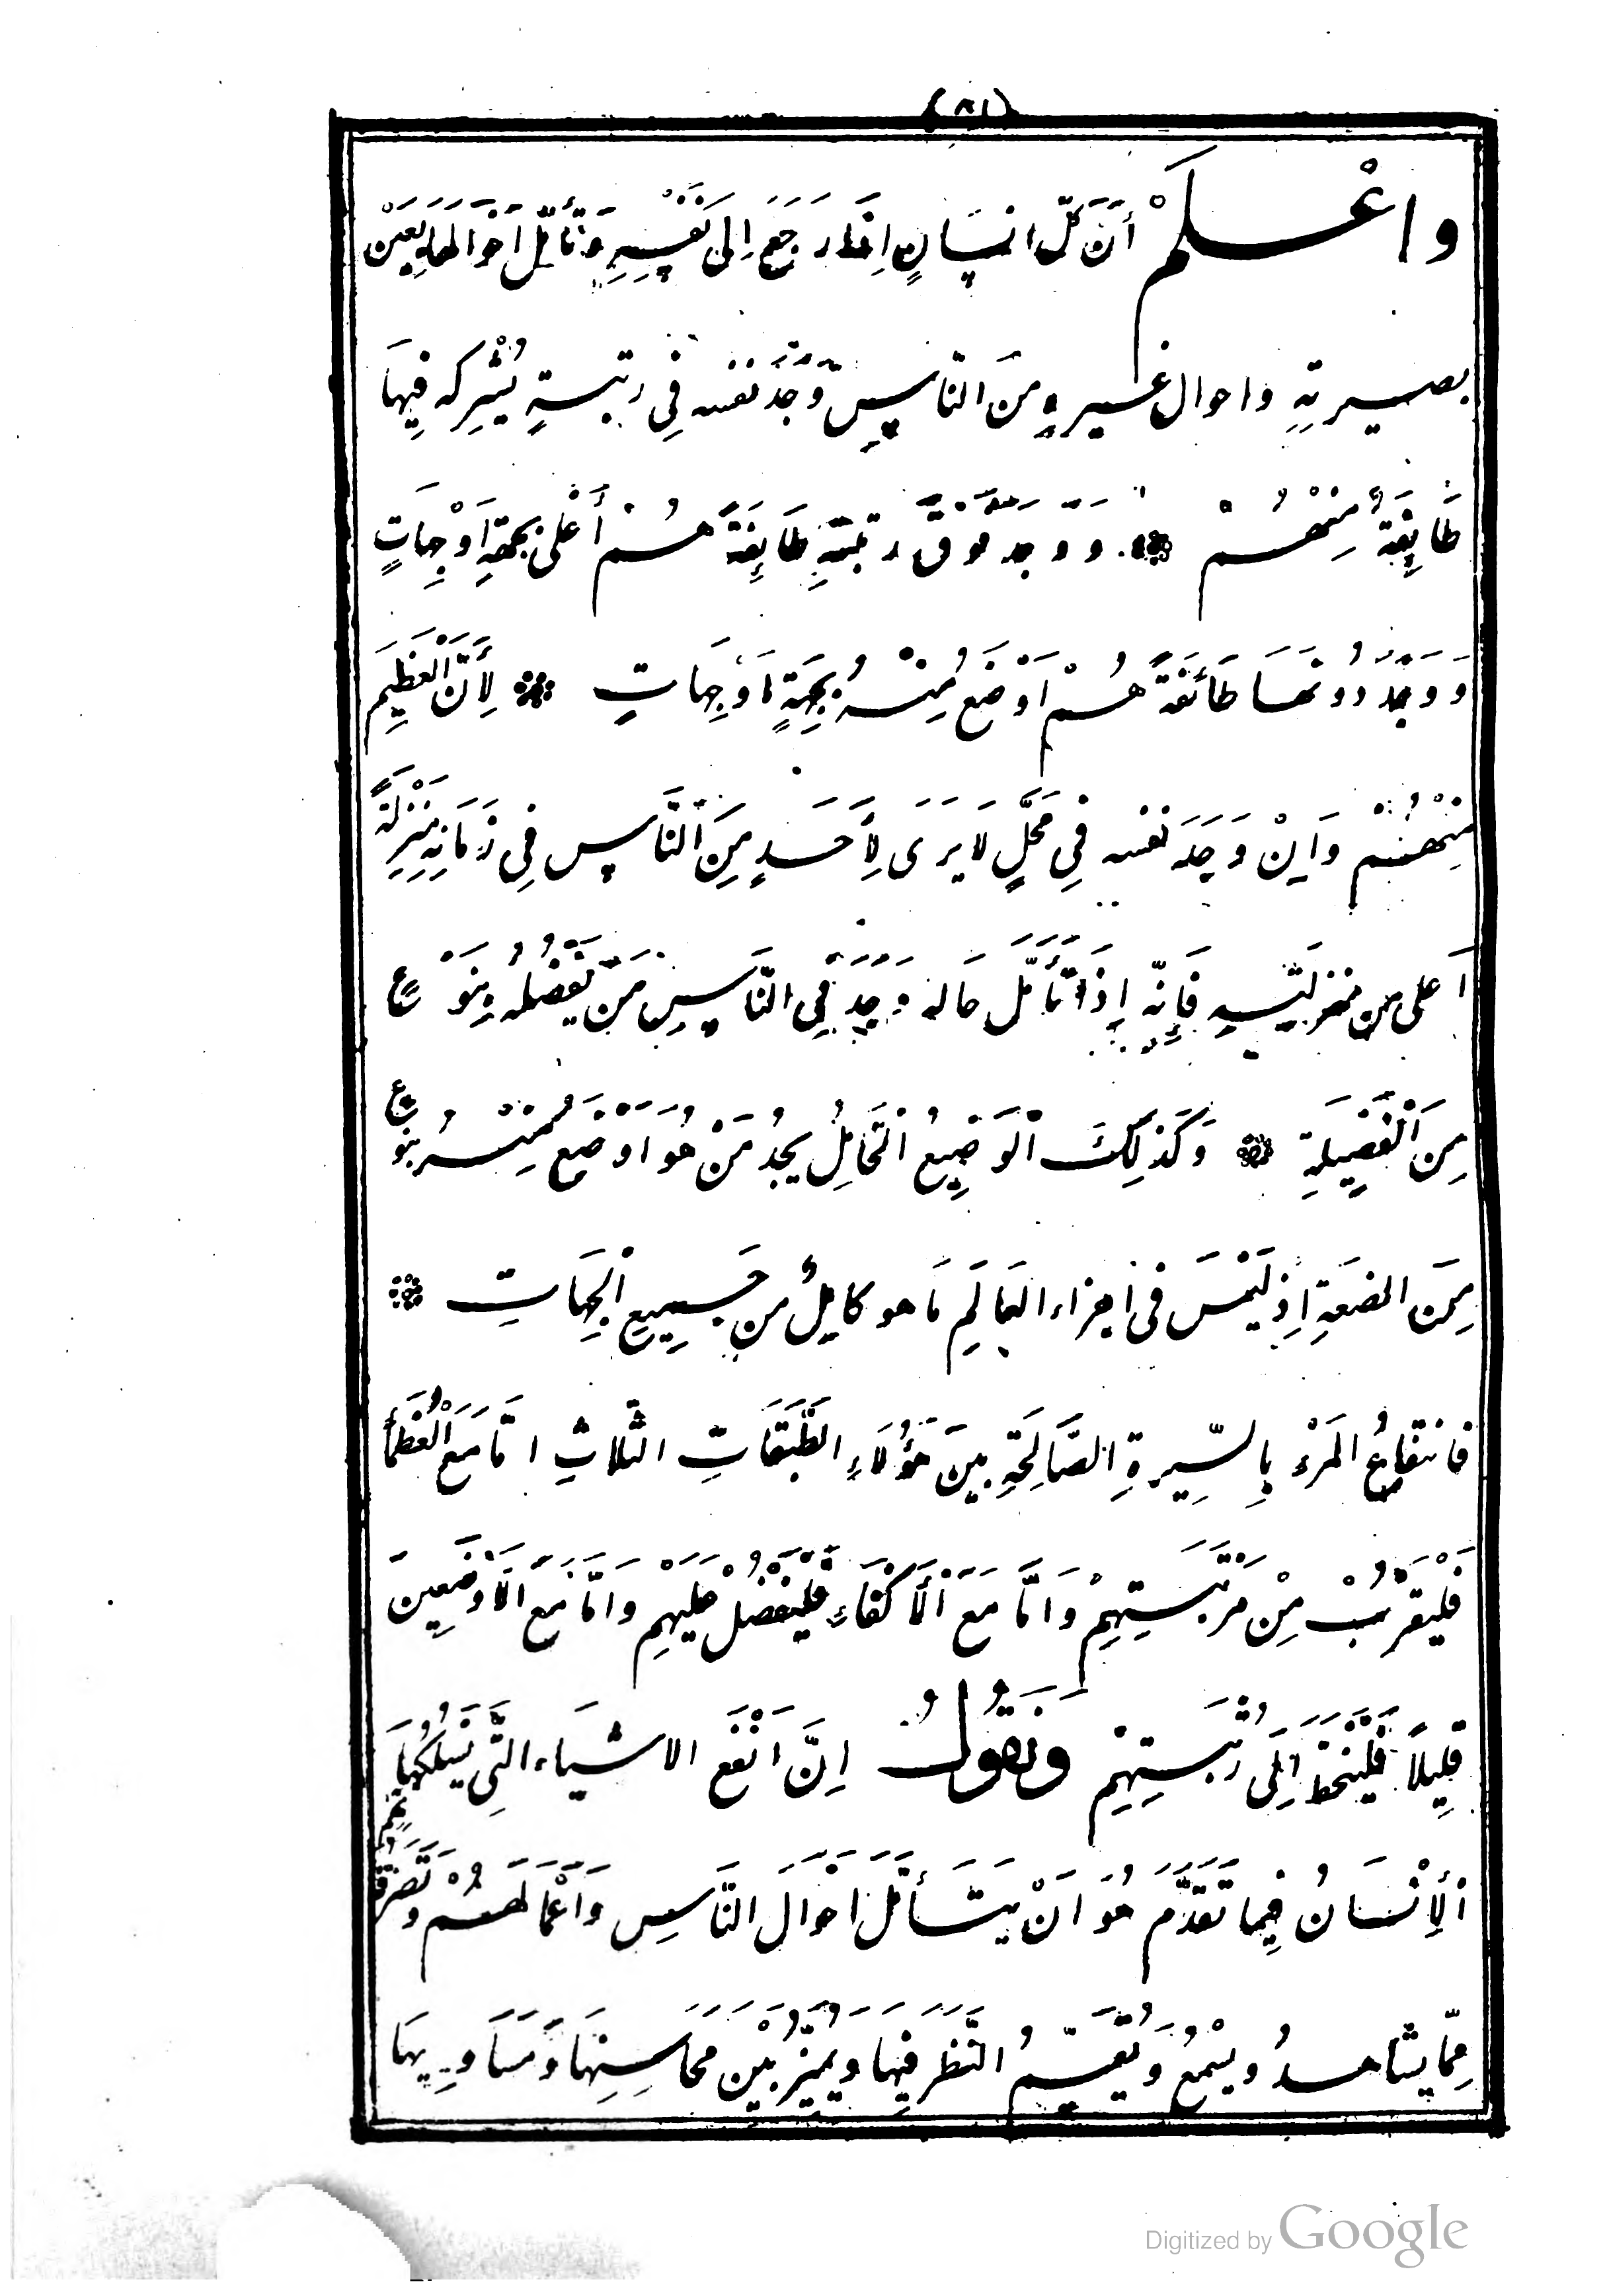 (٨١)
واعْلَمْ أَنَّ كُلَّ انسَانٍ اِذَا رَجَعَ اِلَى نَفْسِهِ وَتَأَمَّلَ اَحْوَالَهَا بِعَيْنِ
بصيرتِهِ واحوال غيرهِ مِنَ النَّاسِ وَجَدَ نفسه فِي رتبةٍ يُشْرِكه فِيهَا
طَائِفَةٌ مِنْهُمْ ۞ وَوَجَدَ فَوْقَ رتبتِهِ طَايِفَةً هُمْ أَعْلَى بجهةٍ اَوْجِهَاتٍ
وَوَجَدَ دُونَهَا طَائِفَةً هُمْ اَوْضَعُ مِنْهُ بِجِهَةٍ اَوْجِهَاتٍ ۞ لِأَنَّ الْعَظِيمَ
مِنْهُمْ وَاِنْ وَجَدَ نفسه فِي مَحَلٍّ لَا يَرَى لِأَحَدٍ مِنَ النَّاسِ فِي زَمَانِهِ مَنْزِلَةً
اَعلى من منزلَتِهِ فَاِنَّه إِذَا تَأَمَّلَ حَاله وَجَدَ فِي النَّاسِ مَنْ يَفْضُلُهُ بِنَوْعٍ
مِنَ الْفَضِيلَةِ ۞ وَكَذلِكَ الْوَضِيعُ الْخَامِلُ يجدُ مَنْ هُوَ اَوْضَعُ مِنْهُ بنَوْعٍ
مِنَ الضعَةِ اِذ لَيْسَ فى اجزاء العَالَمِ مَا هو كامِلٌ من جَمِيعِ الْجِهَاتِ ۞
فانتفاعُ المَرْءِ بِالسِّيرةِ الصَّالِحَةِ بينَ هَؤُلَاءِ الطَّبَقَاتِ الثَّلاثِ امَّا مَعَ الْعُظَمَا
فَلْيَقْرُبْ مِنْ مَرْتَبَتِهِمْ وَاَمَّا مَعَ الْأَكْفَاءِ فَلْيَفْضُلْ عَلَيْهِمْ وَامَّا مَعَ الْاَوْضَعِينَ
قلِيلًا فَلْيَنْحَطَّ اِلَى رُتْبَتِهِمْ وَنَقُولُ اِنَّ اَنْفَعَ الاشيَاء الَّتِى يَسْلُكُهَا
الْأِنْسَانُ فِيما تَقَدَّمَ هُوَ اَنْ يَتَأَمَّلَ اَحْوَالَ النَّاسِ وَاَعْمَالَهُمْ وَتَصَرُّفَهُمْ
مِمَّا يشاهدُ ويسْمَعُ وَيُقَسِّمُ النَّظَرَ فِيهَا وَيُمَيِّزُ بَيْنَ مَحَاسِنِهَا وَمَسَاوِيهَا
Digitized by Google